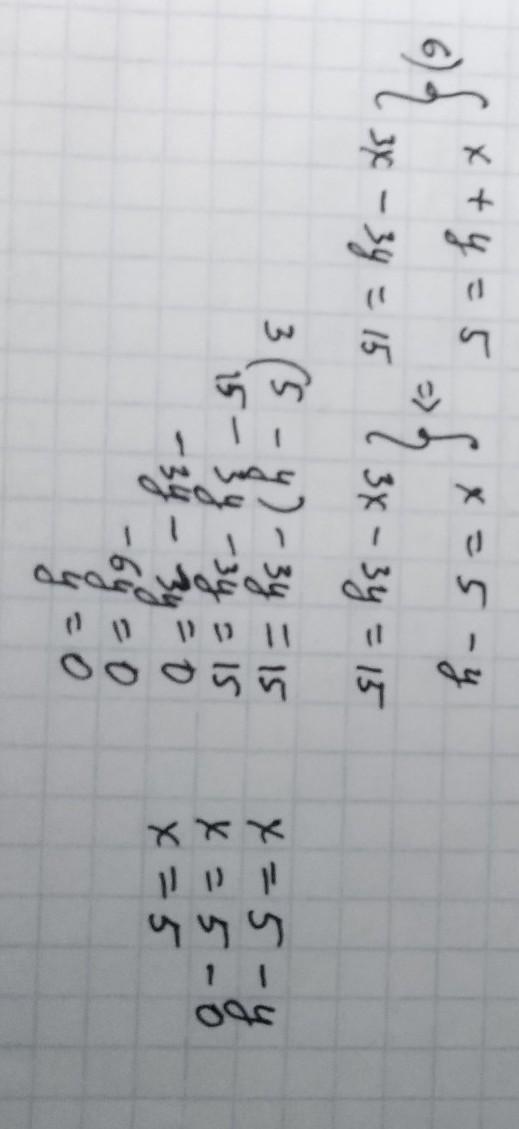 6) { x + y = 5 => { x = 5 - y
3x - 3y = 15 { 3x - 3y = 15
3 (5 - y) - 3y = 15
15 - 3y - 3y = 15
- 3y - 3y = 0
- 6y = 0
y = 0
x = 5 - y
x = 5 - 0
x = 5